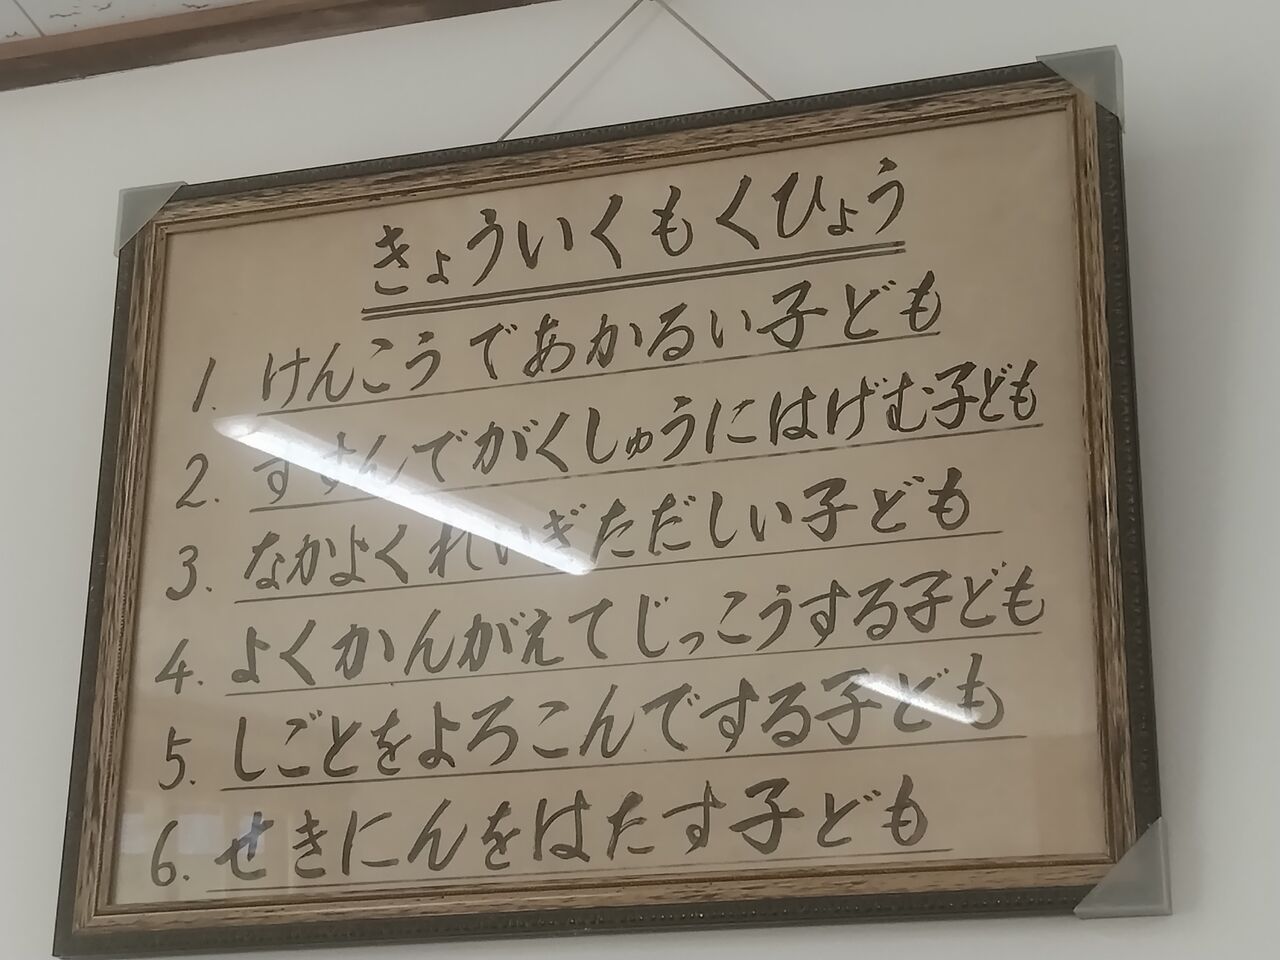 きょういくもくひょう
1. けんこうであかるい子ども
2. すすんでがくしゅうにはげむ子ども
3. なかよくれいぎただしい子ども
4. よくかんがえてじっこうする子ども
5. しごとをよろこんでする子ども
6. せきにんをはたす子ども